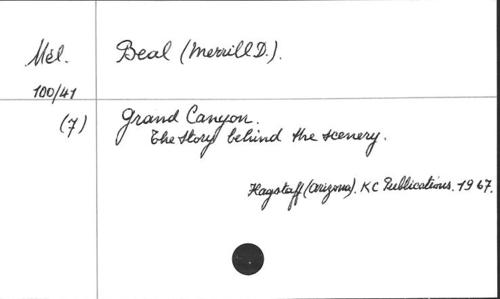 Mél. Beal (Merrill D.).
100/41
(7) Grand Canyon.
The story behind the scenery.
Flagstaff (Arizona). KC Publications. 1967.